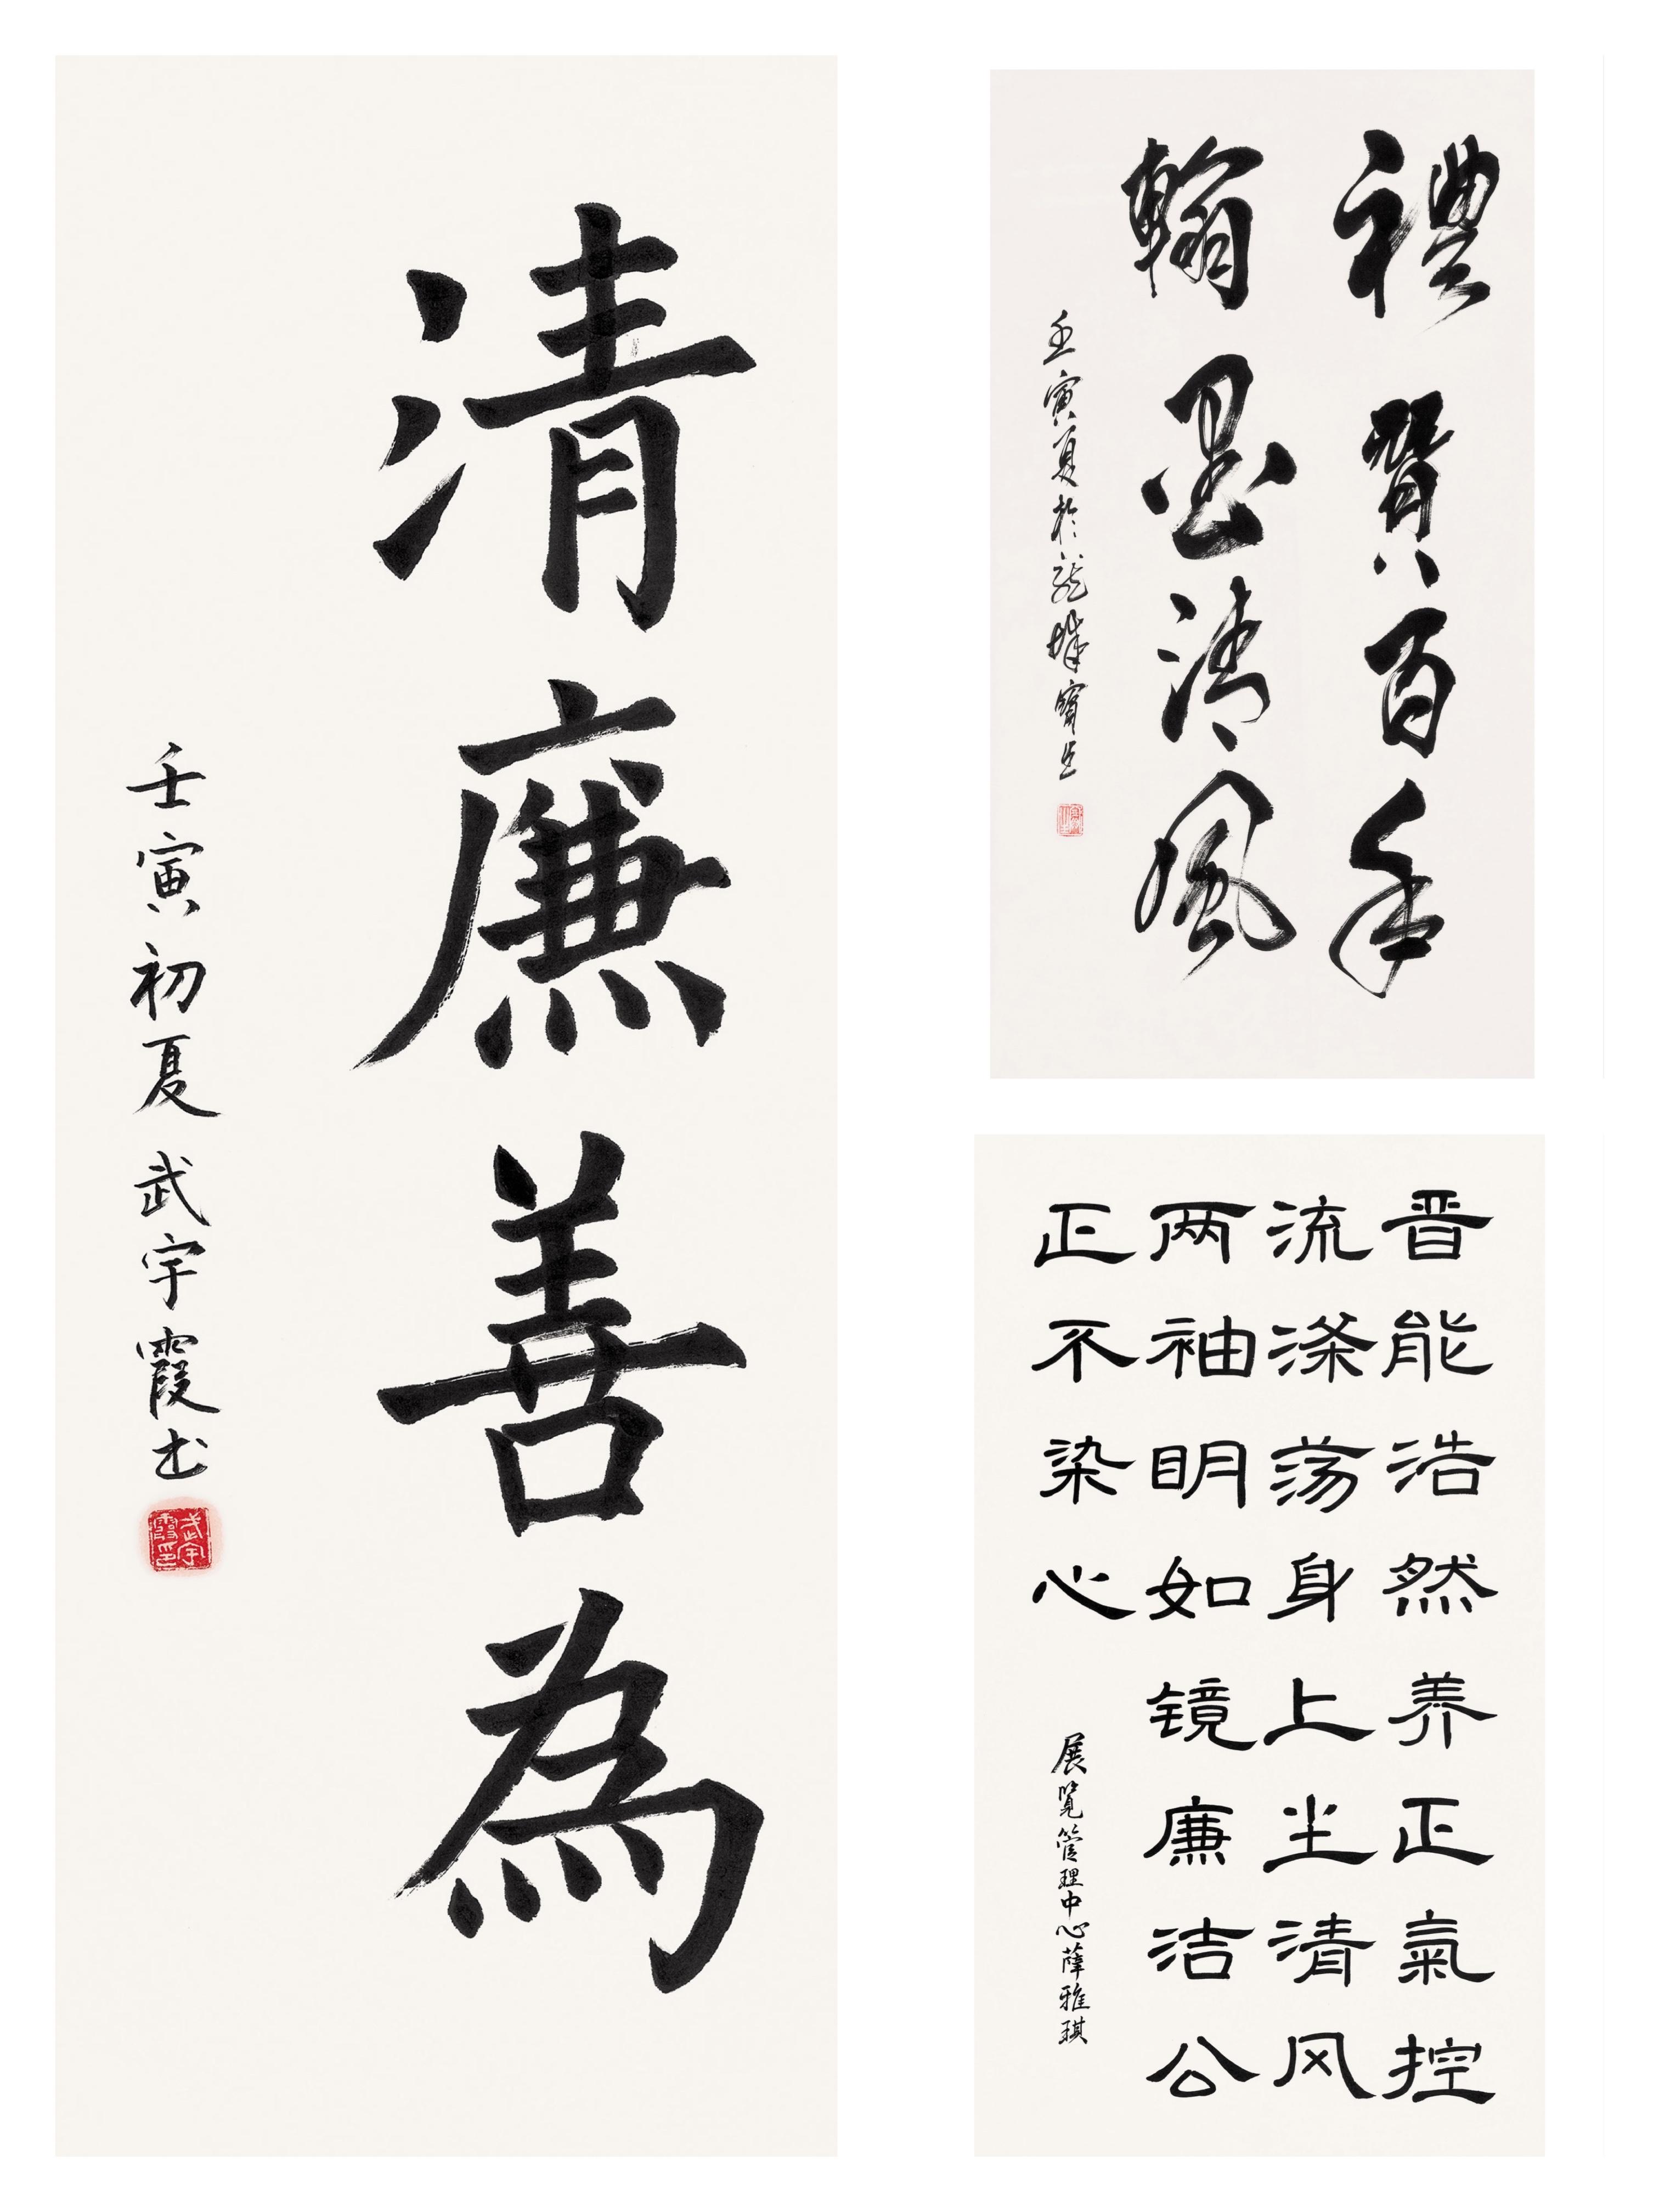 清廉善為
壬寅初夏武宇霞书
武宇霞印
禮贊百年
翰墨清風
壬寅夏於龍城寶
晋能浩然养正氣控
流涤荡身上尘清风
两袖明如镜廉洁公
正不染心
展览管理中心薛雅琪